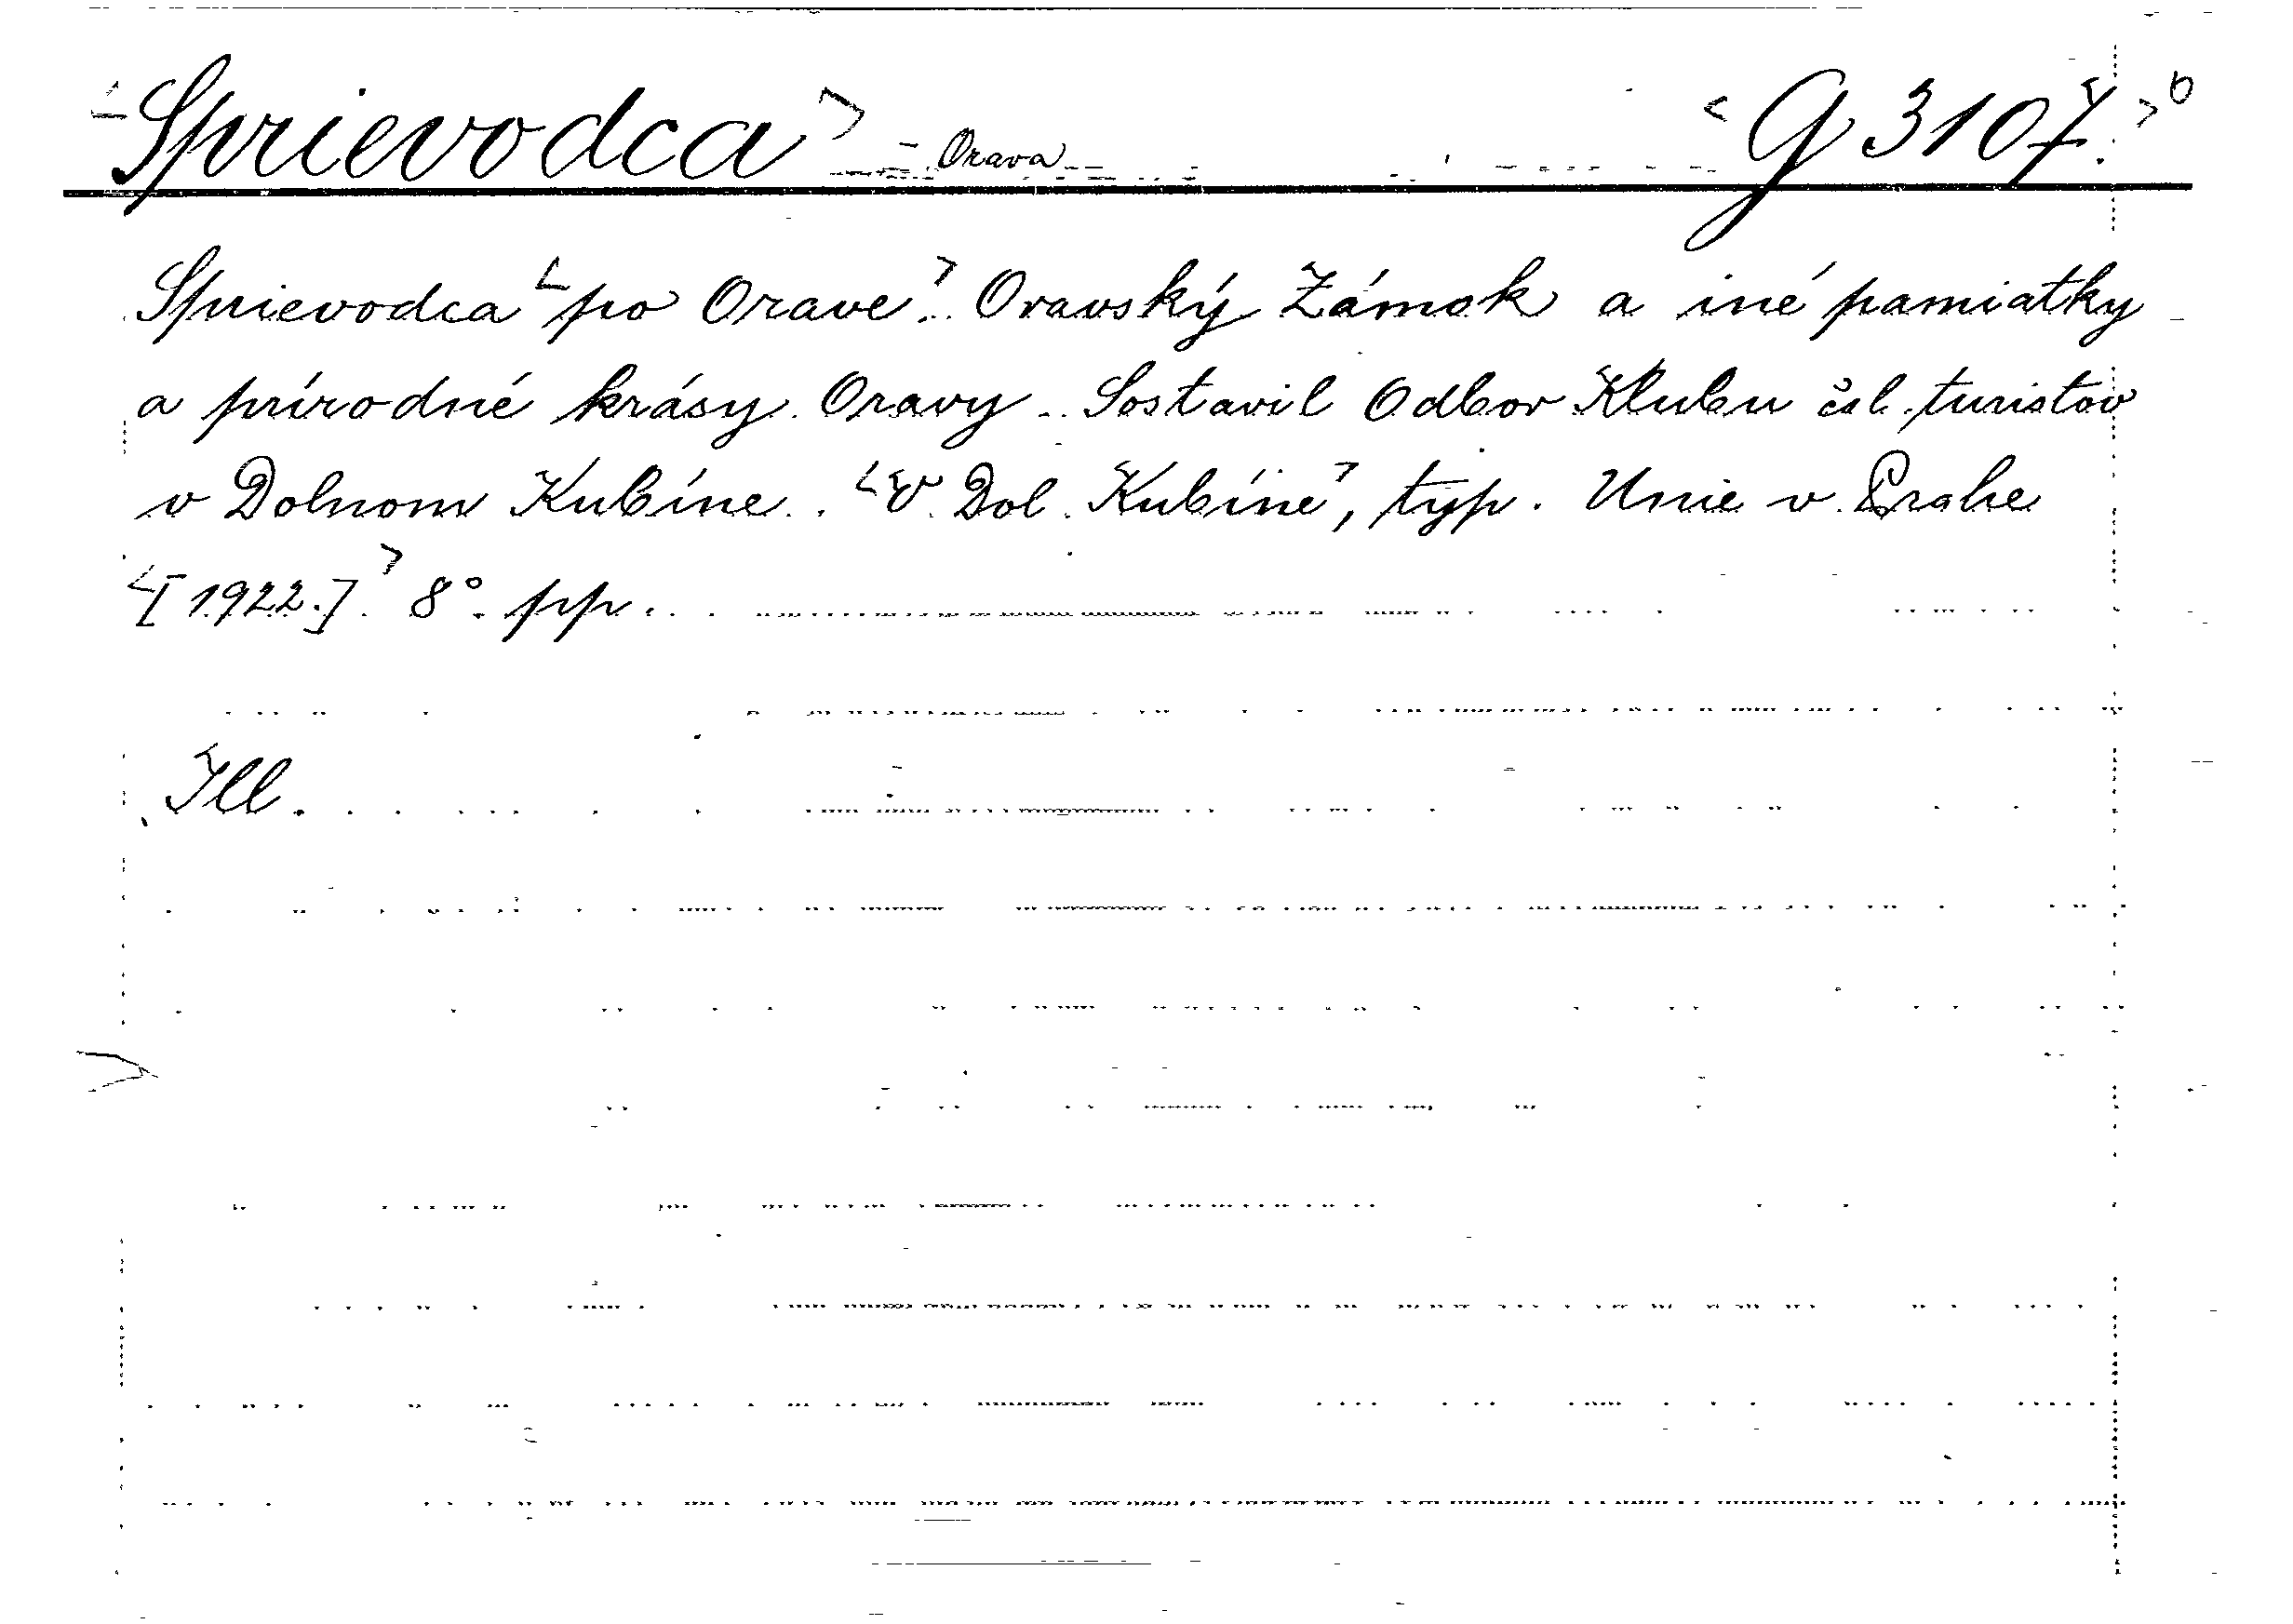 Sprievodca Orava G 3107
Sprievodca po Orave. Oravský Zámok a iné pamiatky
a prírodné krásy Oravy. Sostavil Odbor Klubu čsl. turistov
v Dolnom Kubíne. V Dol. Kubíne, typ. Unie v Prahe
[1922.] 8°. pp.
Ill.